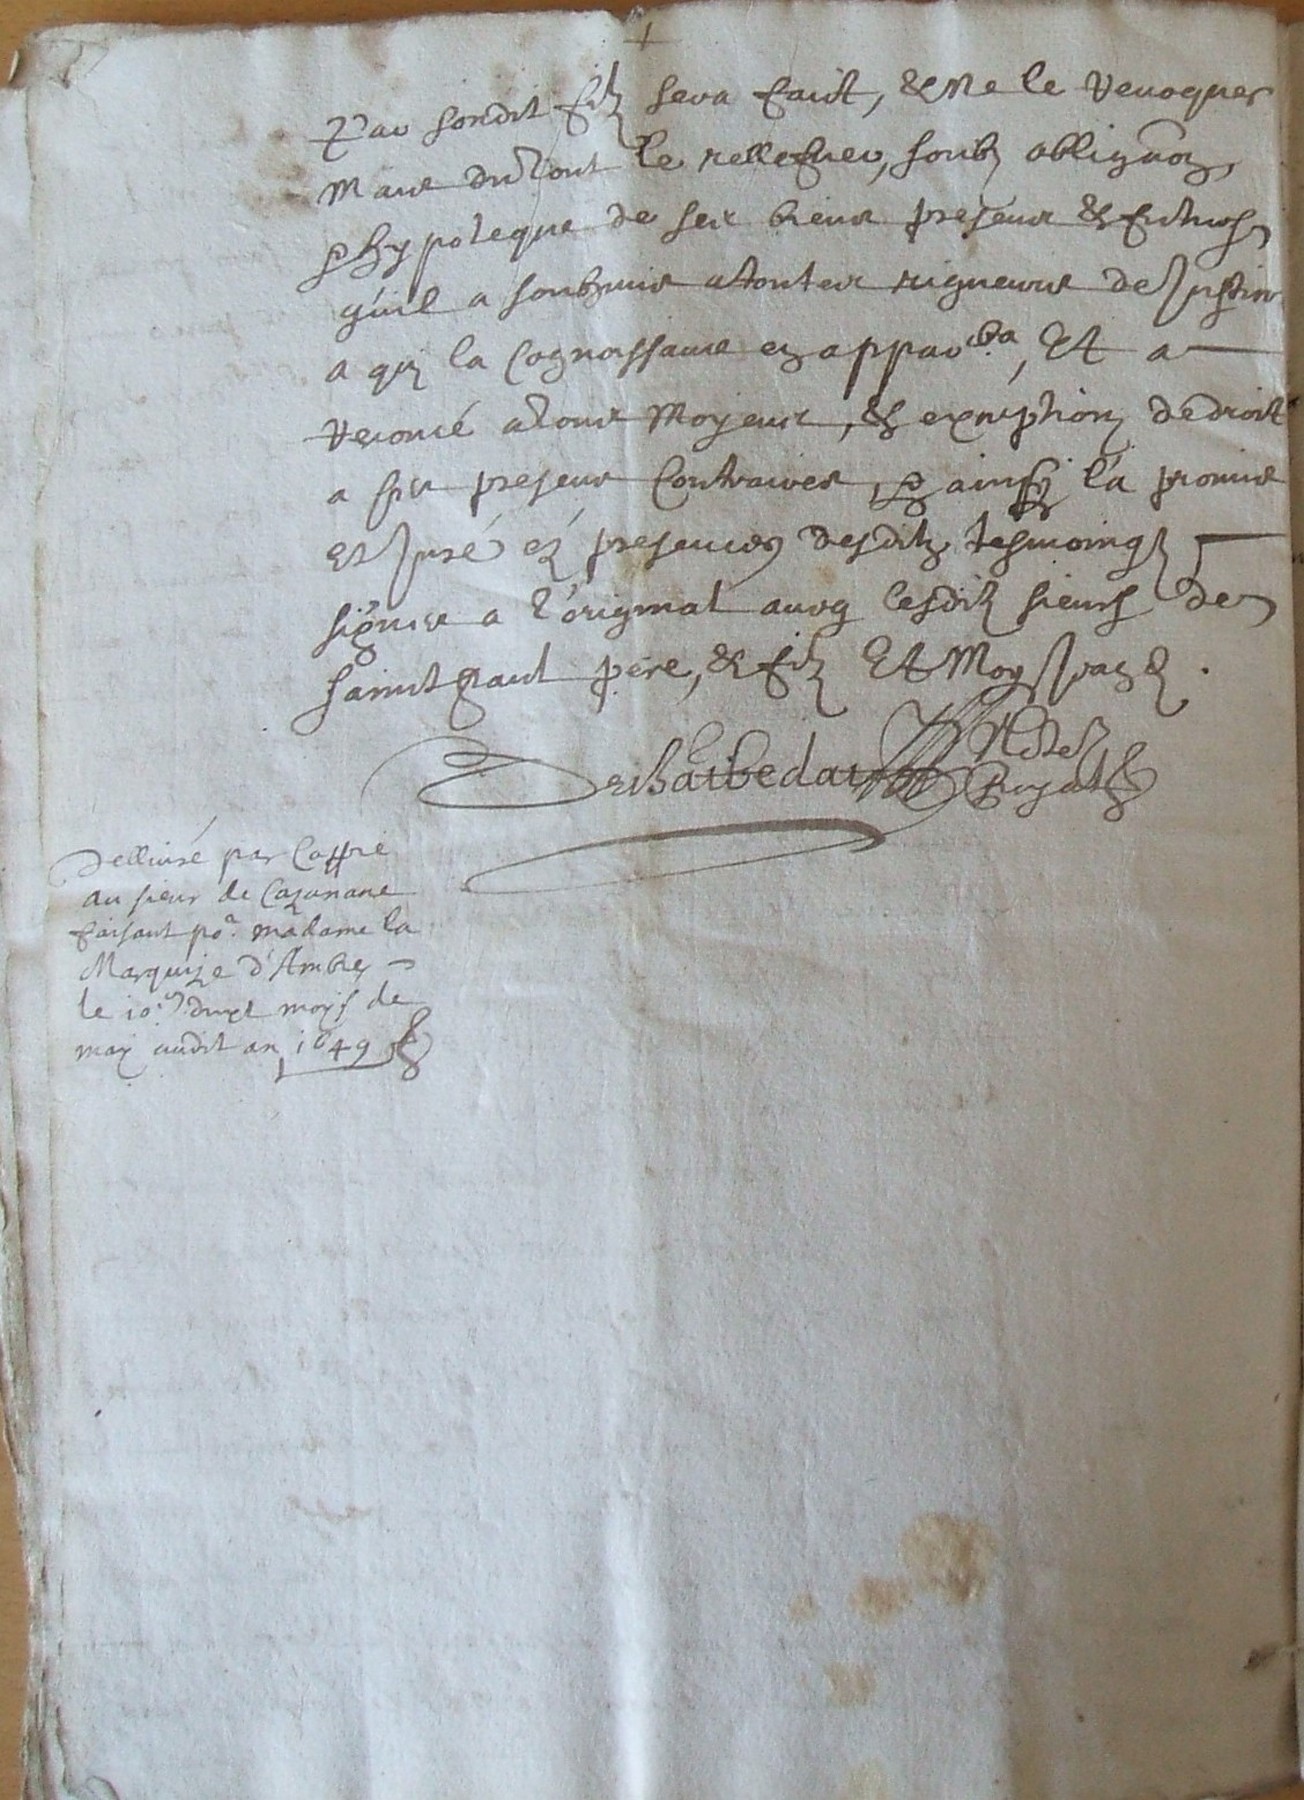 par sondit filz sera faict, & ne le revoquer
mais du tout le rellever, soubz obligaõn
& hypoteque de ses biens presens & futurs
qu'il a soubzmis a toutes rigueurs de Justice
a qui la Cognoissance en appar.dra, Et a
renoncé a tous Moyens, & exception de droit
a ses presens Contraires, & ainsy l'a promis
et Juré éz presences desditz tesmoings
signés a l'original avec lesditz sieurs de
sainct paul pere, & filz Et Moy
Nõtre
Royal
Dellivré par Coppie
au sieur de Cazanane
faisant po.r madame la
Marquize d'Ambres
le 10.e du pnt moys de
may audit an 1649